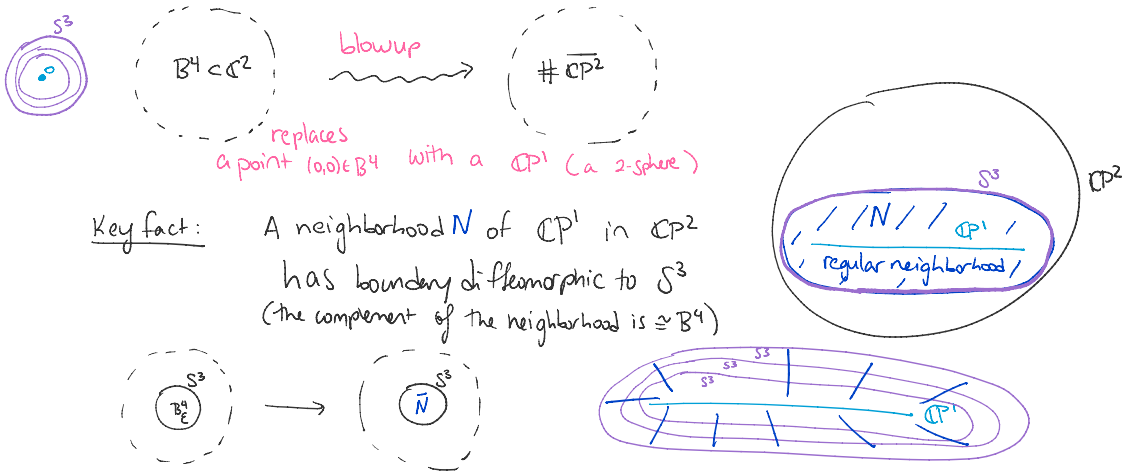 S³
B⁴ ⊂ ℂ²
blowup
# \overline{ℂP²}
replaces
a point (0,0) ∈ B⁴ with a ℂP¹ (a 2-sphere)
Key fact: A neighborhood N of ℂP¹ in ℂP²
has boundary diffeomorphic to S³
(the complement of the neighborhood is ≅ B⁴)
ℂP²
S³
N
ℂP¹
regular neighborhood
S³
B⁴_ε
S³
\overline{N}
S³
S³
S³
ℂP¹